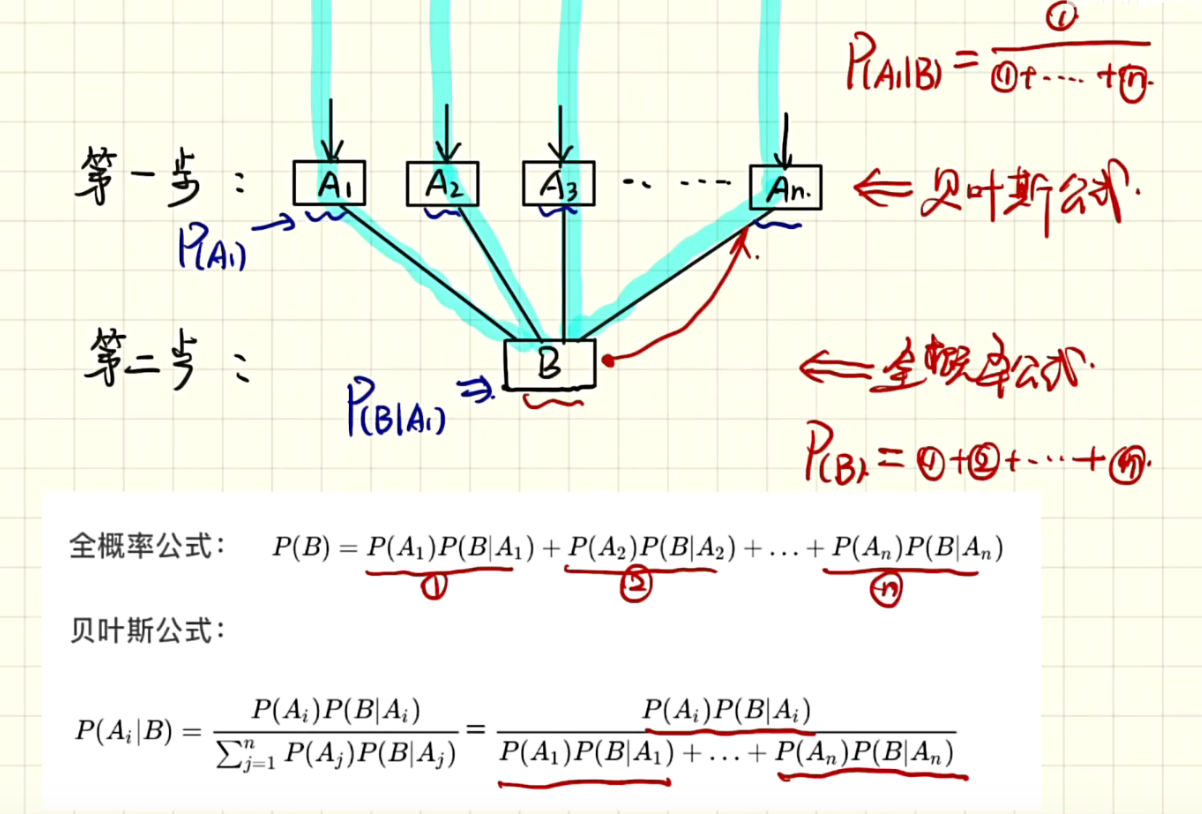 P(A₁|B) = ①/(①+……+ⓝ).
第一步： A₁ A₂ A₃ ...... An. ⇐ 贝叶斯公式.
P(A₁) →
第二步： B ⇐ 全概率公式.
P(B|A₁) ⇒
P(B) = ①+②+……+ⓝ.
全概率公式： P(B) = P(A₁)P(B|A₁) + P(A₂)P(B|A₂) + … + P(Aₙ)P(B|Aₙ)
① ② ⓝ
贝叶斯公式：
P(Aᵢ|B) = P(Aᵢ)P(B|Aᵢ) / ∑ⁿⱼ₌₁ P(Aⱼ)P(B|Aⱼ) = P(Aᵢ)P(B|Aᵢ) / P(A₁)P(B|A₁) + … + P(Aₙ)P(B|Aₙ)